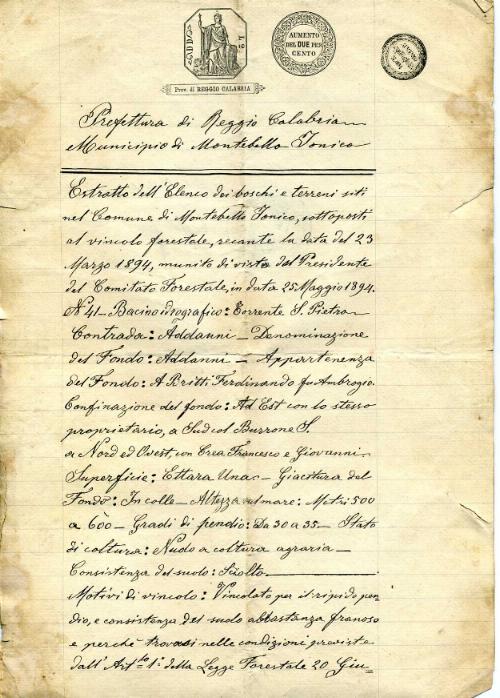 AUMENTO
DEL DUE PER
CENTO
Prov. di REGGIO CALABRIA
Prefettura di Reggio Calabria
Municipio di Montebello Ionico
Estratto dell'Elenco dei boschi e terreni siti
nel Comune di Montebello Ionico, sottoposti
al vincolo forestale, recante la data del 23
Marzo 1894, munito di visto del Presidente
del Comitato Forestale, in data 25 Maggio 1894.
N° 41 - Bacino idrografico: Torrente S. Pietro
Contrada: Addanni - Denominazione
del Fondo: Addanni - Appartenenza
del Fondo: A Britti Ferdinando fu Ambrogio.
Confinazione del fondo: Ad Est con lo stesso
proprietario, a Sud col Burrone S.
a Nord ed Ovest con Crea Francesco e Giovanni
Superficie: Ettara Una - Giacitura del
Fondo: In colle - Altezza sul mare: Metri 500
a 600 - Gradi di pendio: Da 30 a 35 - Stato
di coltura: Nudo a coltura agraria -
Consistenza del suolo: Sciolto
Motivi di vincolo: Vincolato per il ripido pen
dio, e consistenza del suolo abbastanza franoso
e perchè trovasi nelle condizioni previste
dall'Art.lo 1° della Legge Forestale 20 Giu-